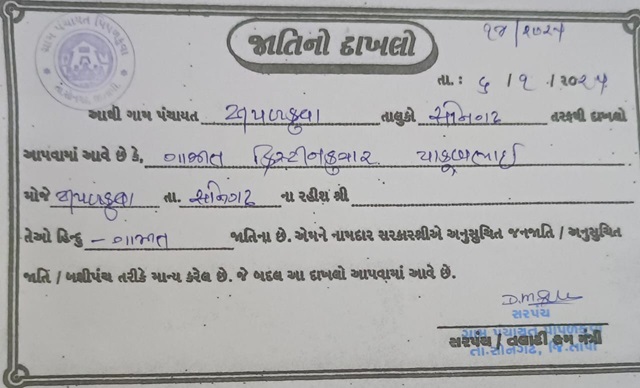 ગ્રામ પંચાયત પિપળકુવા
જાતિનો દાખલો
૧૪/૨૦૨૫
તા. : ૬ / ૧ / ૨૦૨૫
આથી ગામ પંચાયત પીપળકુવા તાલુકો સોનગઢ તરફથી દાખલો
આપવામાં આવે છે કે, ગામીત ક્રિસ્ટીનકુમાર યાકુબભાઈ
મોજે પીપળકુવા તા. સોનગઢ ના રહીશ શ્રી
તેઓ હિન્દુ - ગામીત જાતિના છે. એમને નામદાર સરકારશ્રીએ અનુસુચિત જનજાતિ / અનુસુચિત
જાતિ / બક્ષીપંચ તરીકે માન્ય કરેલ છે. જે બદલ આ દાખલો આપવામાં આવે છે.
સરપંચ
ગ્રામ પંચાયત પીપળકુવા
સરપંચ / તલાટી કમ મંત્રી
તા.સોનગઢ, જિ.તાપી